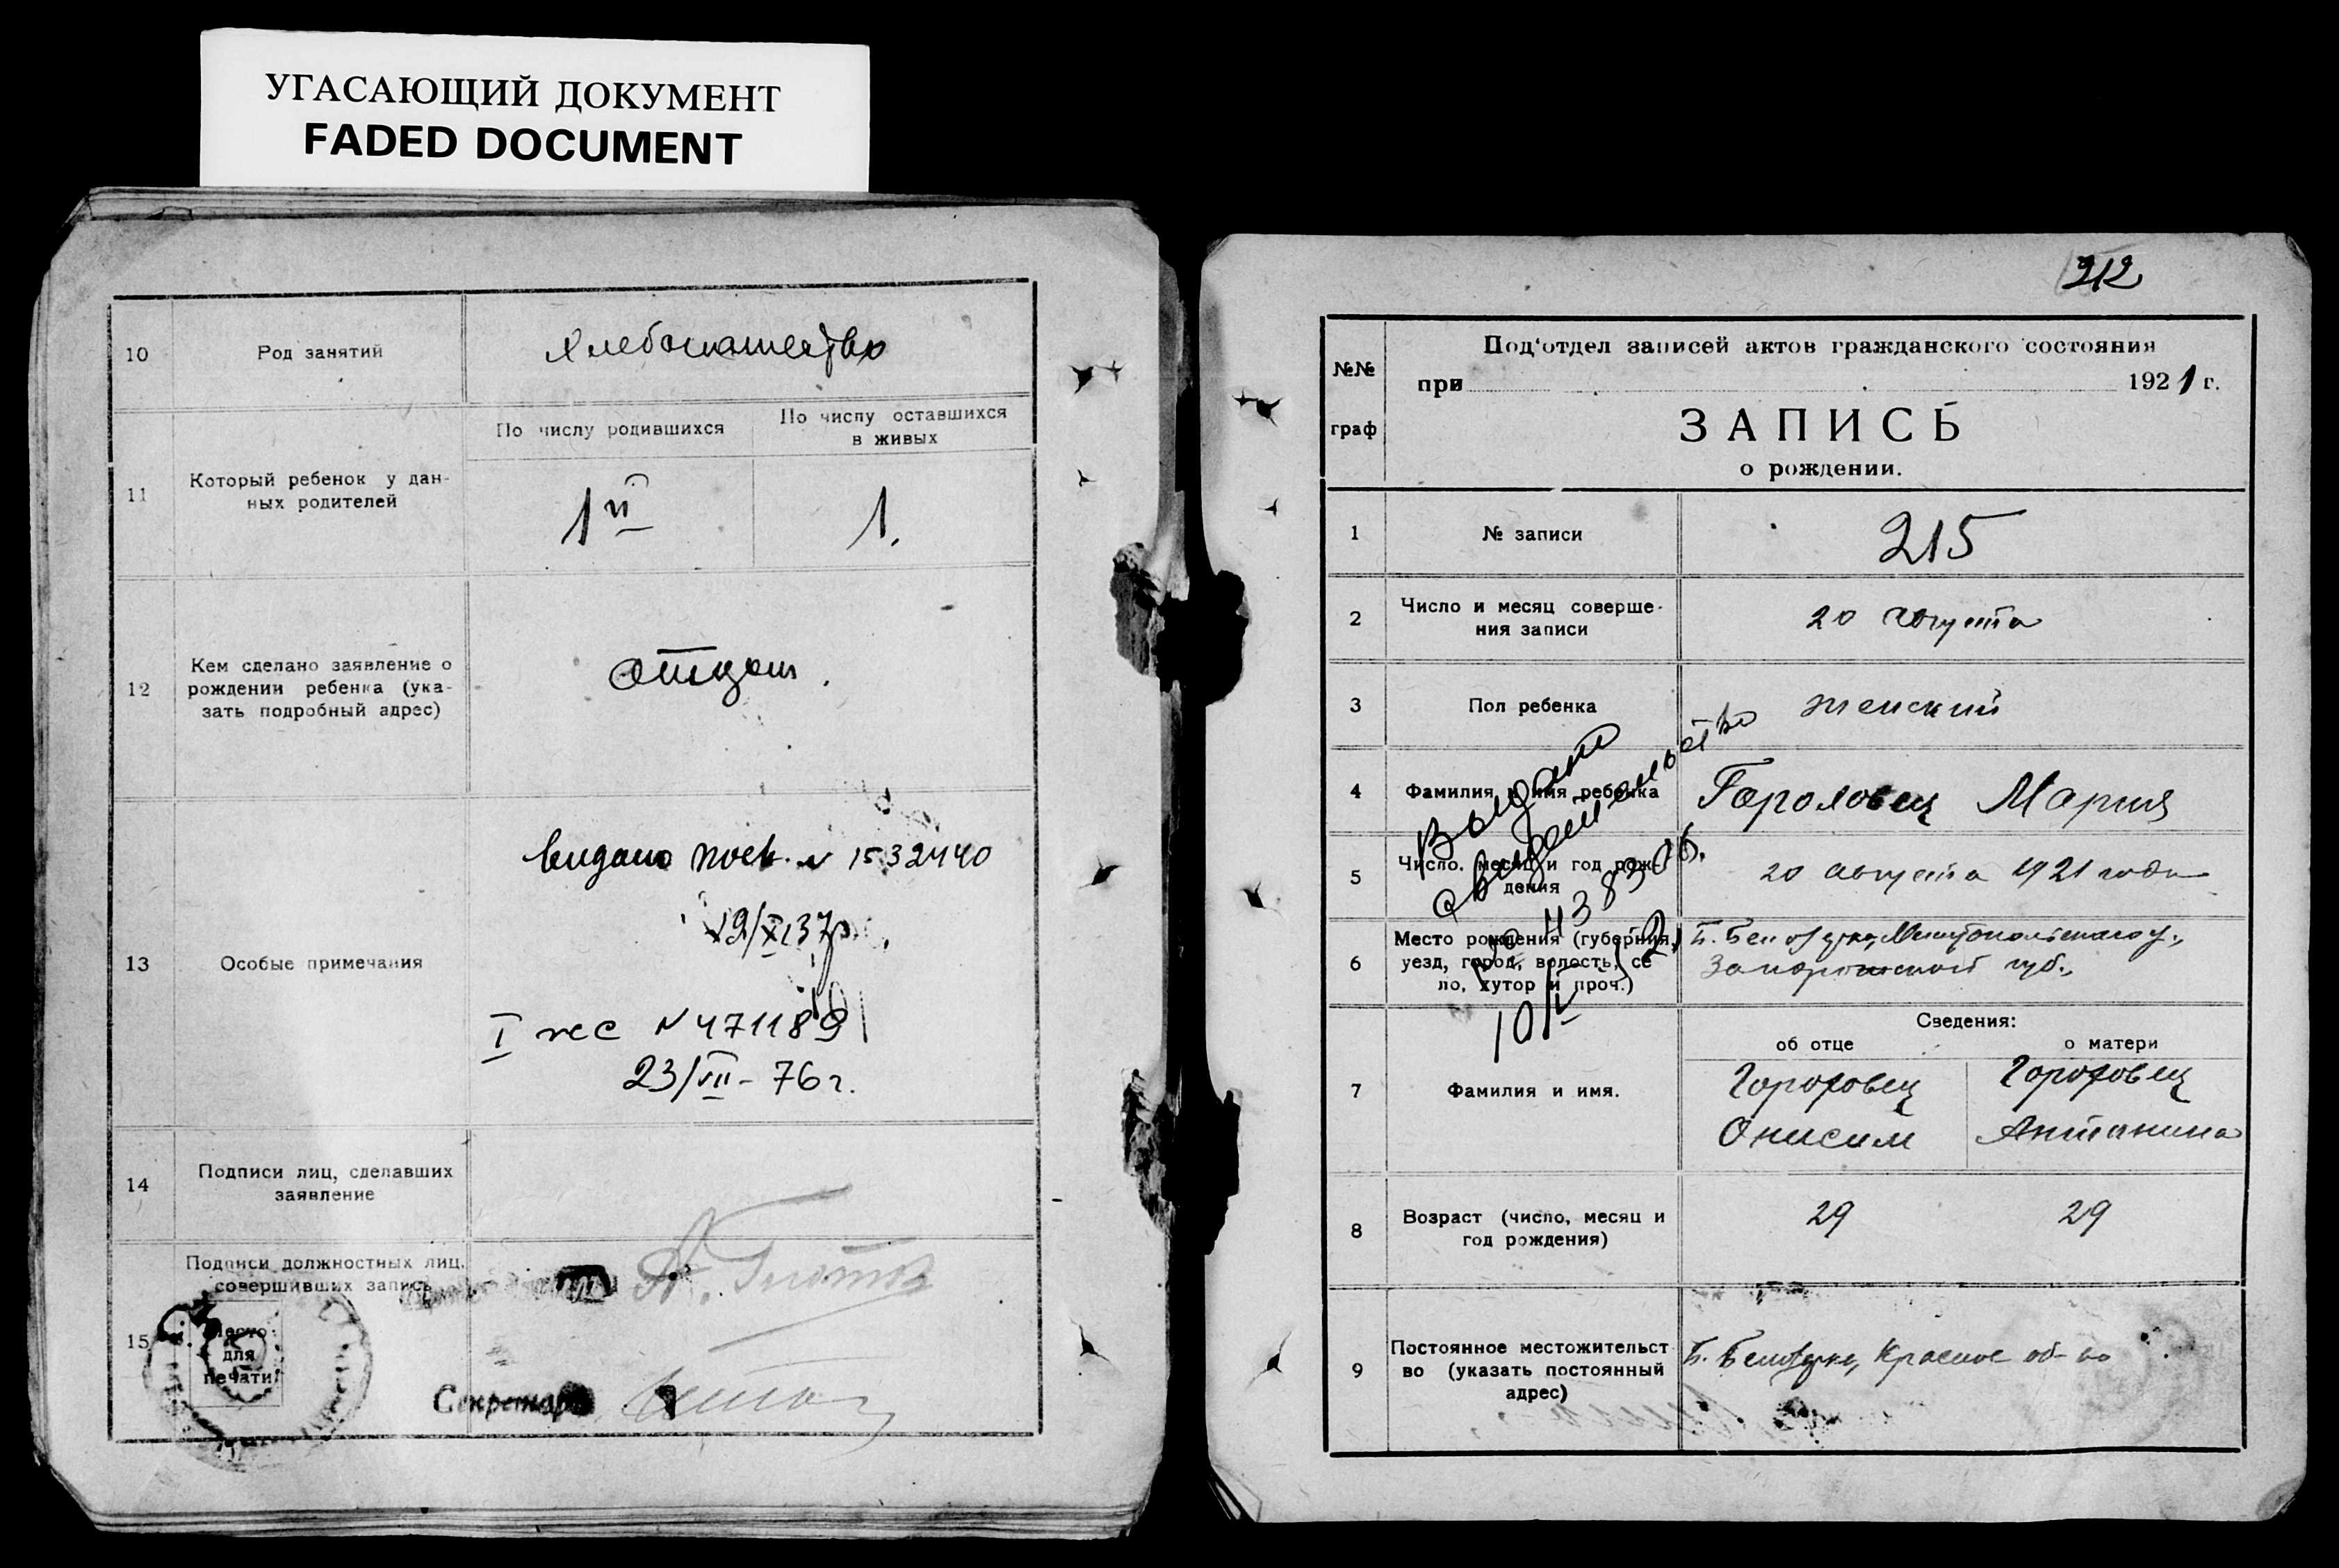 УГАСАЮЩИЙ ДОКУМЕНТ
FADED DOCUMENT
10
Род занятий
Хлебопашество
11
Который ребенок у дан-
ных родителей
По числу родившихся
По числу оставшихся
в живых
1й
1.
12
Кем сделано заявление о
рождении ребенка (ука-
зать подробный адрес)
отцом.
13
Особые примечания
видано посв. № 1532440
19/X 37р.
I жс № 471189
23/VII - 76 г.
14
Подписи лиц, сделавших
заявление
15
Подписи должностных лиц,
совершивших запись
Место
для
печати
Секретарь
212
№№
граф
Под'отдел записей актов гражданского состояния
при 1921 г.
ЗАПИСЬ
о рождении.
1
№ записи
215
2
Число и месяц соверше-
ния записи
20 августа
3
Пол ребенка
женский
4
Фамилия и имя ребенка
Мария
5
Число, месяц и год рож-
дения
20 августа 1921 года
6
Место рождения (губерния,
уезд, город, волость, се-
ло, хутор и проч.)
Б. Белозерка, Мелитопольского у.,
Запорожской губ.,
Выдано
свидетельство
7
Фамилия и имя.
Сведения:
об отце
о матери
Онисим
Антанина
8
Возраст (число, месяц и
год рождения)
29
29
9
Постоянное местожительст
во (указать постоянный
адрес)
Б. Белозерка, Красное об-во